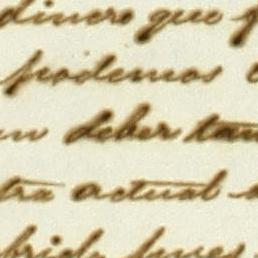 dinero que
podemos
un deber tan
tra actual
pues